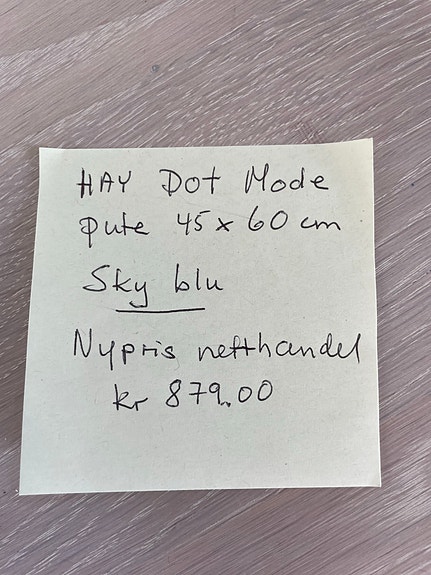 HAY Dot Mode
pute 45 x 60 cm
Sky blu
Nypris netthandel
kr 879.00